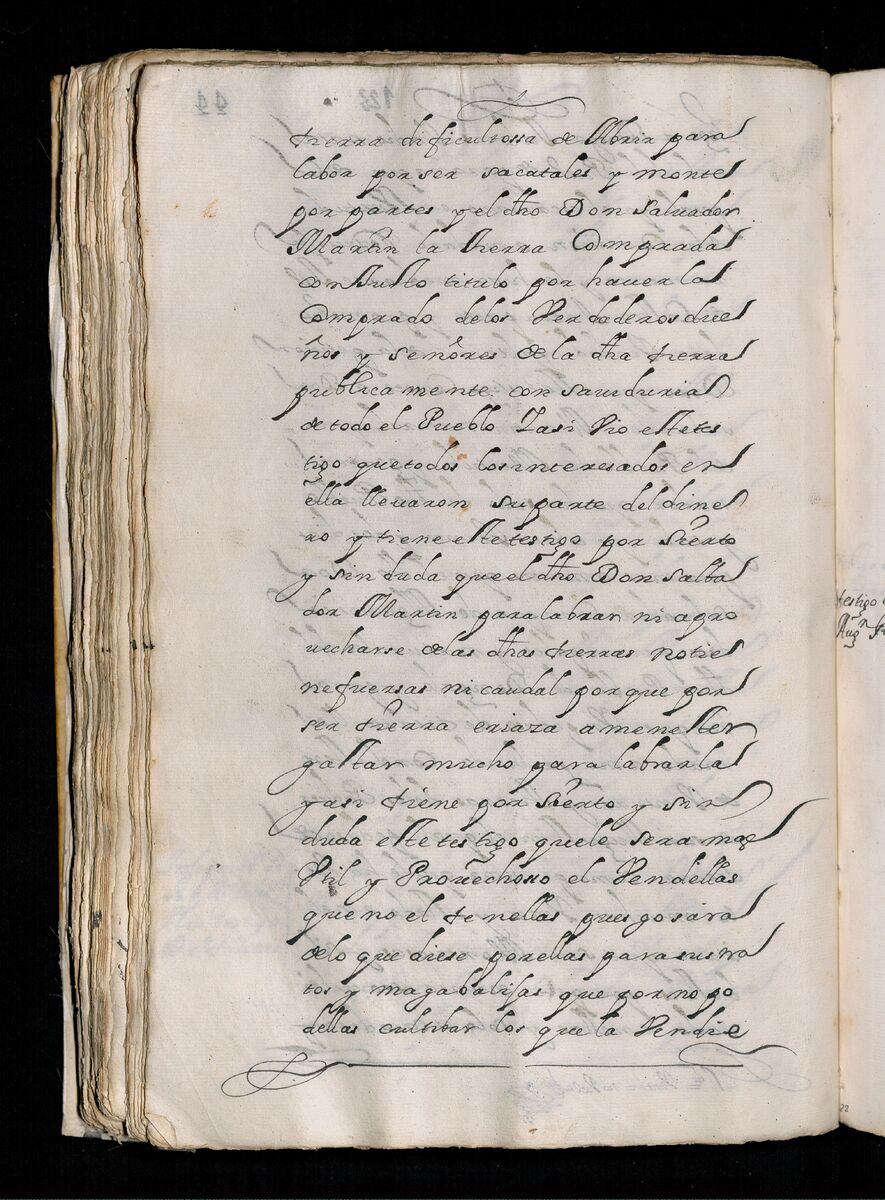 tierra dificultossa de Abrir para
labor por ser sacatales y monte
por partes y el dho Don Saluador
Martin la tierra Comprada
con Justo titulo por hauer la
Comprado delos Verdaderos due
ños y señores de la dha tierra
publica mente con sauiduria
de todo el Pueblo Iasi Vio este tes
tigo que todos los interesados en
ella lleuaron su parte del dine
ro y tiene este testigo por sierto
y sin duda que el dho Don Salba
dor Martin para labrar ni apro
uecharse de las dhas tierras no tie
ne fuersas ni caudal por que por
ser tierra eriaza a menester
gastar mucho para labrar la
y asi tiene por sierto y sin
duda este testigo que le sera mas
Vtil y Prouechosso el Vendellas
que no el tenellas pues gosara
de lo que diese por ellas para sus tra
tos y que por no po
dellas cultibar los que la Vendie
testigo
Augn